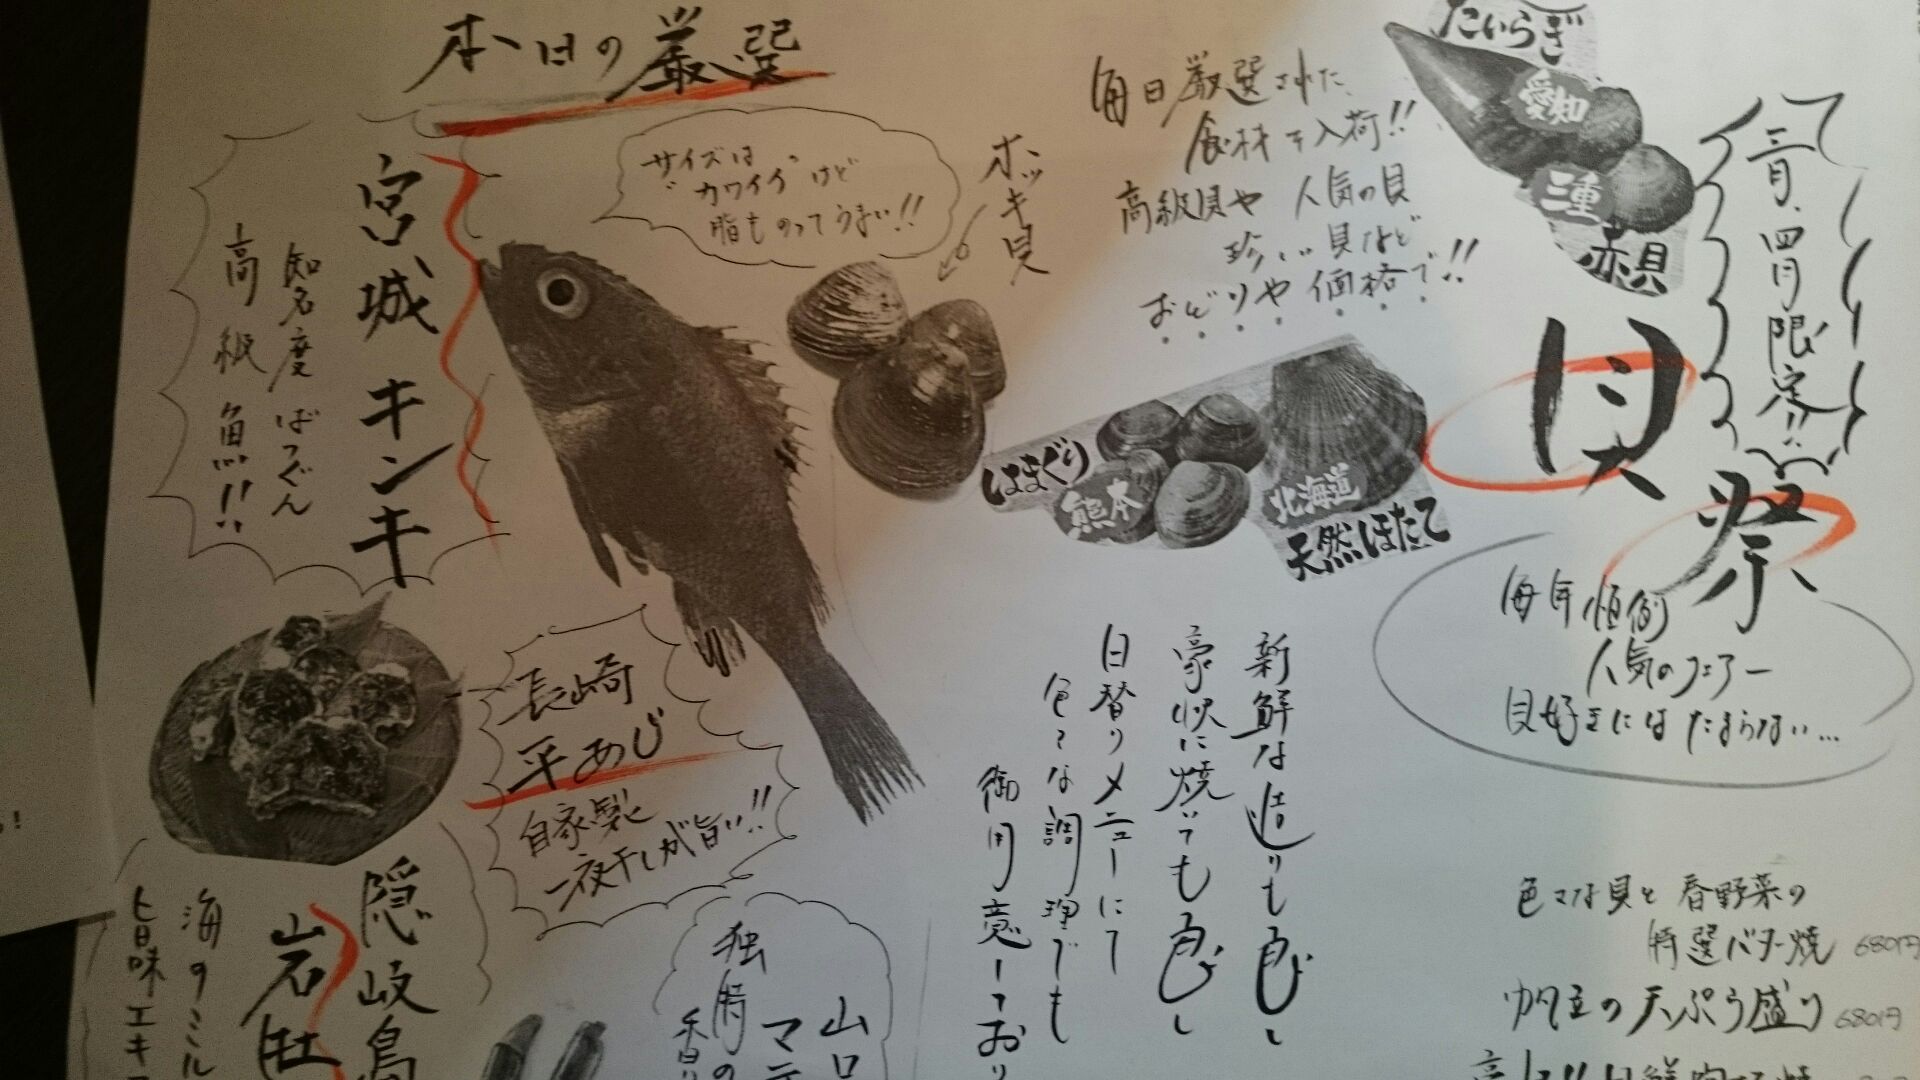 本日の厳選
宮城 キンキ
知名度ばつぐん
高級魚!!
サイズは
"カワイイ"けど
脂ものってうまい!!
ホッキ貝
毎日厳選された
食材を入荷!!
高級貝や 人気の貝
珍しい貝など
おどりや価格で!!
たいらぎ
愛知
三重
赤貝
三月、四月限定!!
貝祭
毎年恒例
人気のフェアー
貝好きにはたまらない…
はまぐり
熊本
北海道
天然ほたて
新鮮な造りも良し
豪快に焼いても良し
日替りメニューにて
色々な調理でも
御用意しており
長崎
平あじ
自家製
一夜干しが旨い!!
隠岐島
岩牡
海のミル
旨味エキ
山口
マテ
独特の
香り
色々な貝と春野菜の
特選バター焼 680円
帆立の天ぷら盛り 680円